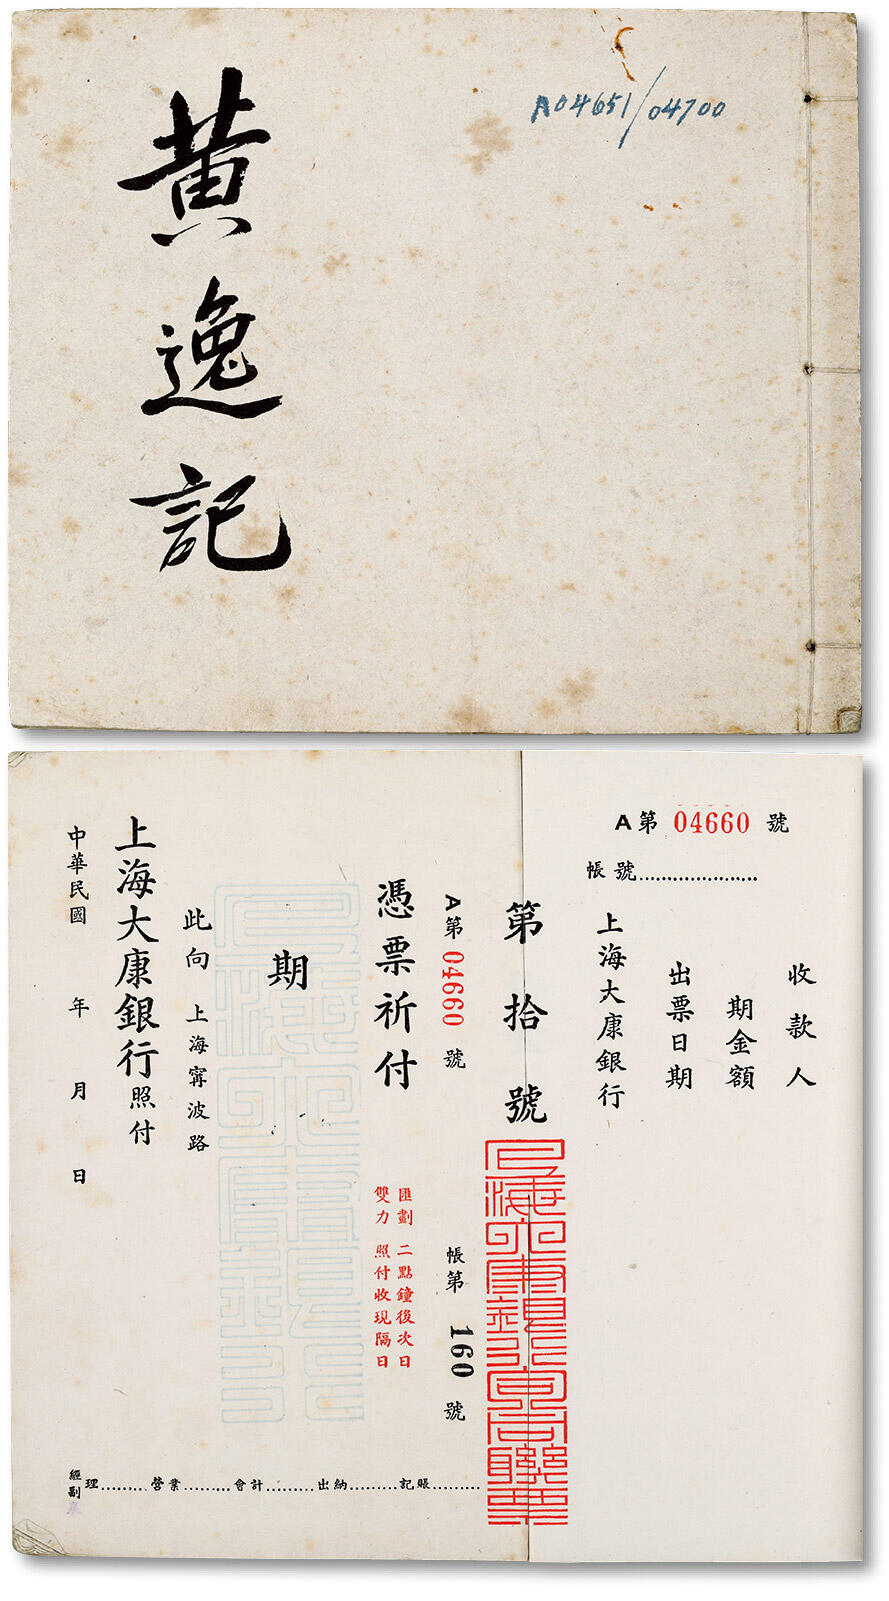 黄逸記
A04651/04700
A第 04660 號
帳號
收款人
期金額
出票日期
上海大康銀行
第拾號
A第 04660 號
帳第 160 號
憑票祈付
匯劃 二點鐘後次日
雙力 照付收現隔日
期
此向 上海甯波路
上海大康銀行照付
中華民國 年 月 日
經副理 營業 會計 出納 記賬